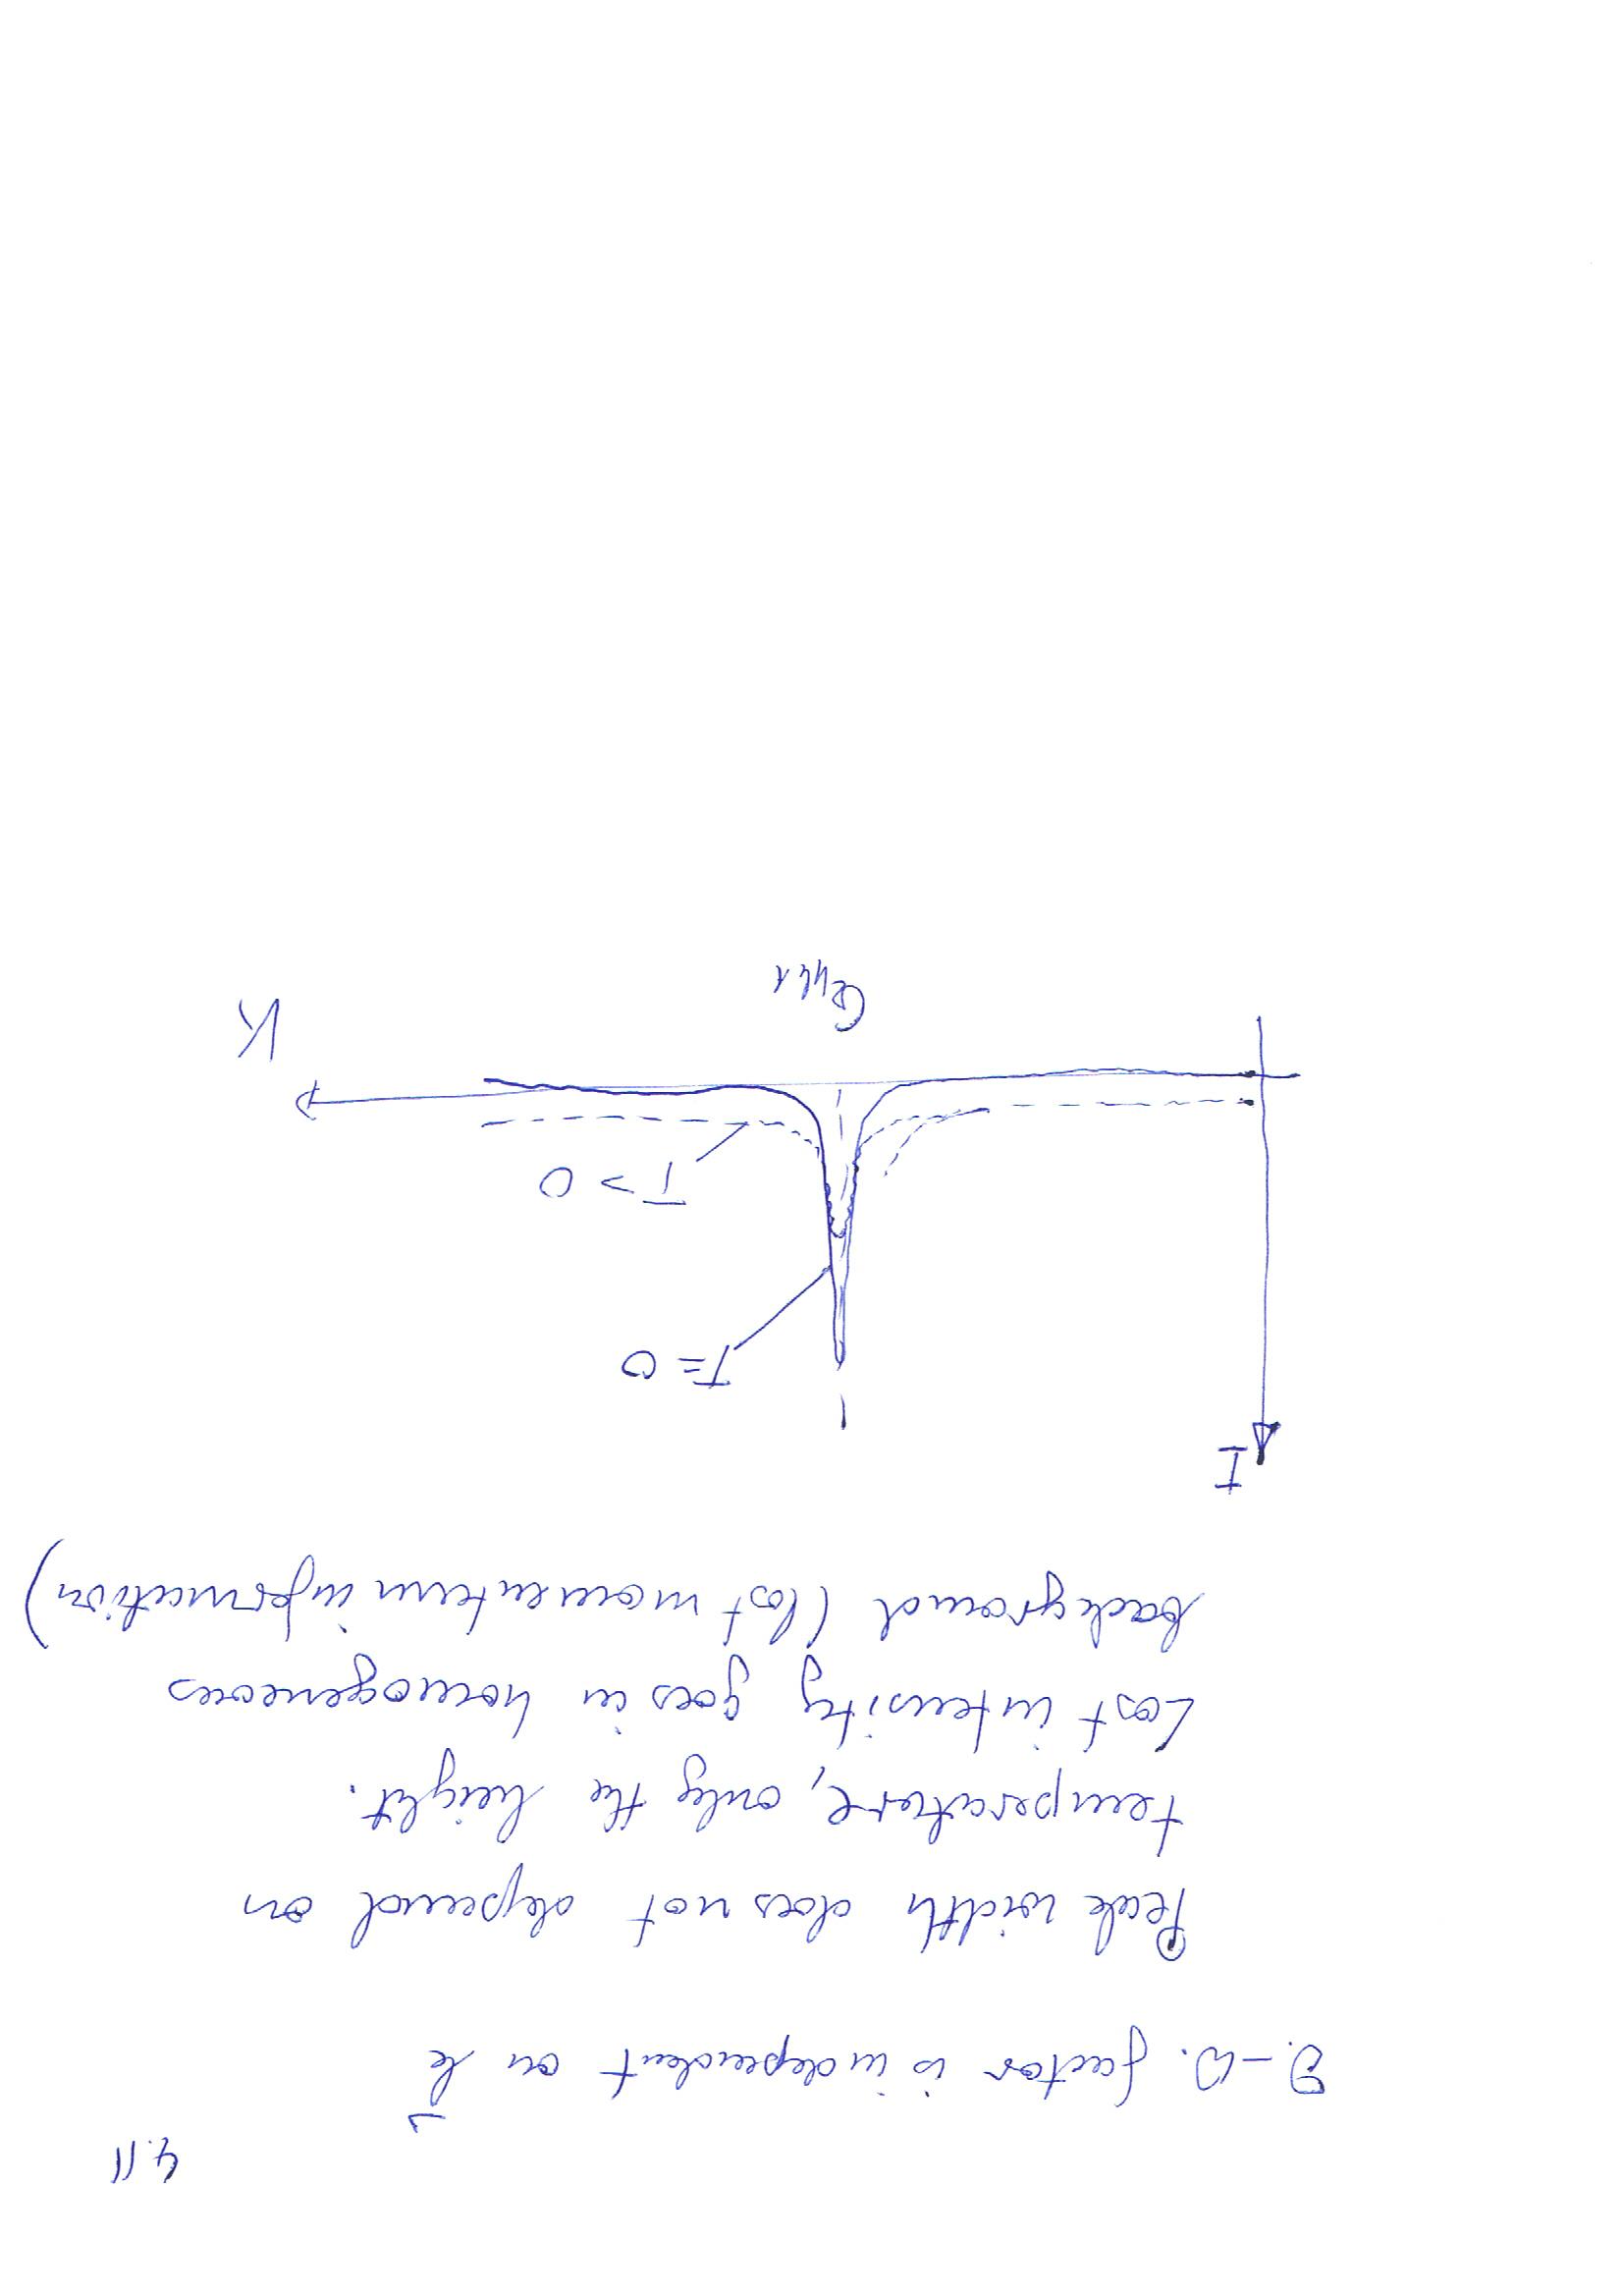 4.11
D.-W. factor is independent on k⃗
Peak width does not depend on
temperature, only the height.
Lost intensity goes in homogeneous
background (lost momentum information)
I
T=0
T>0
K
Ghkl